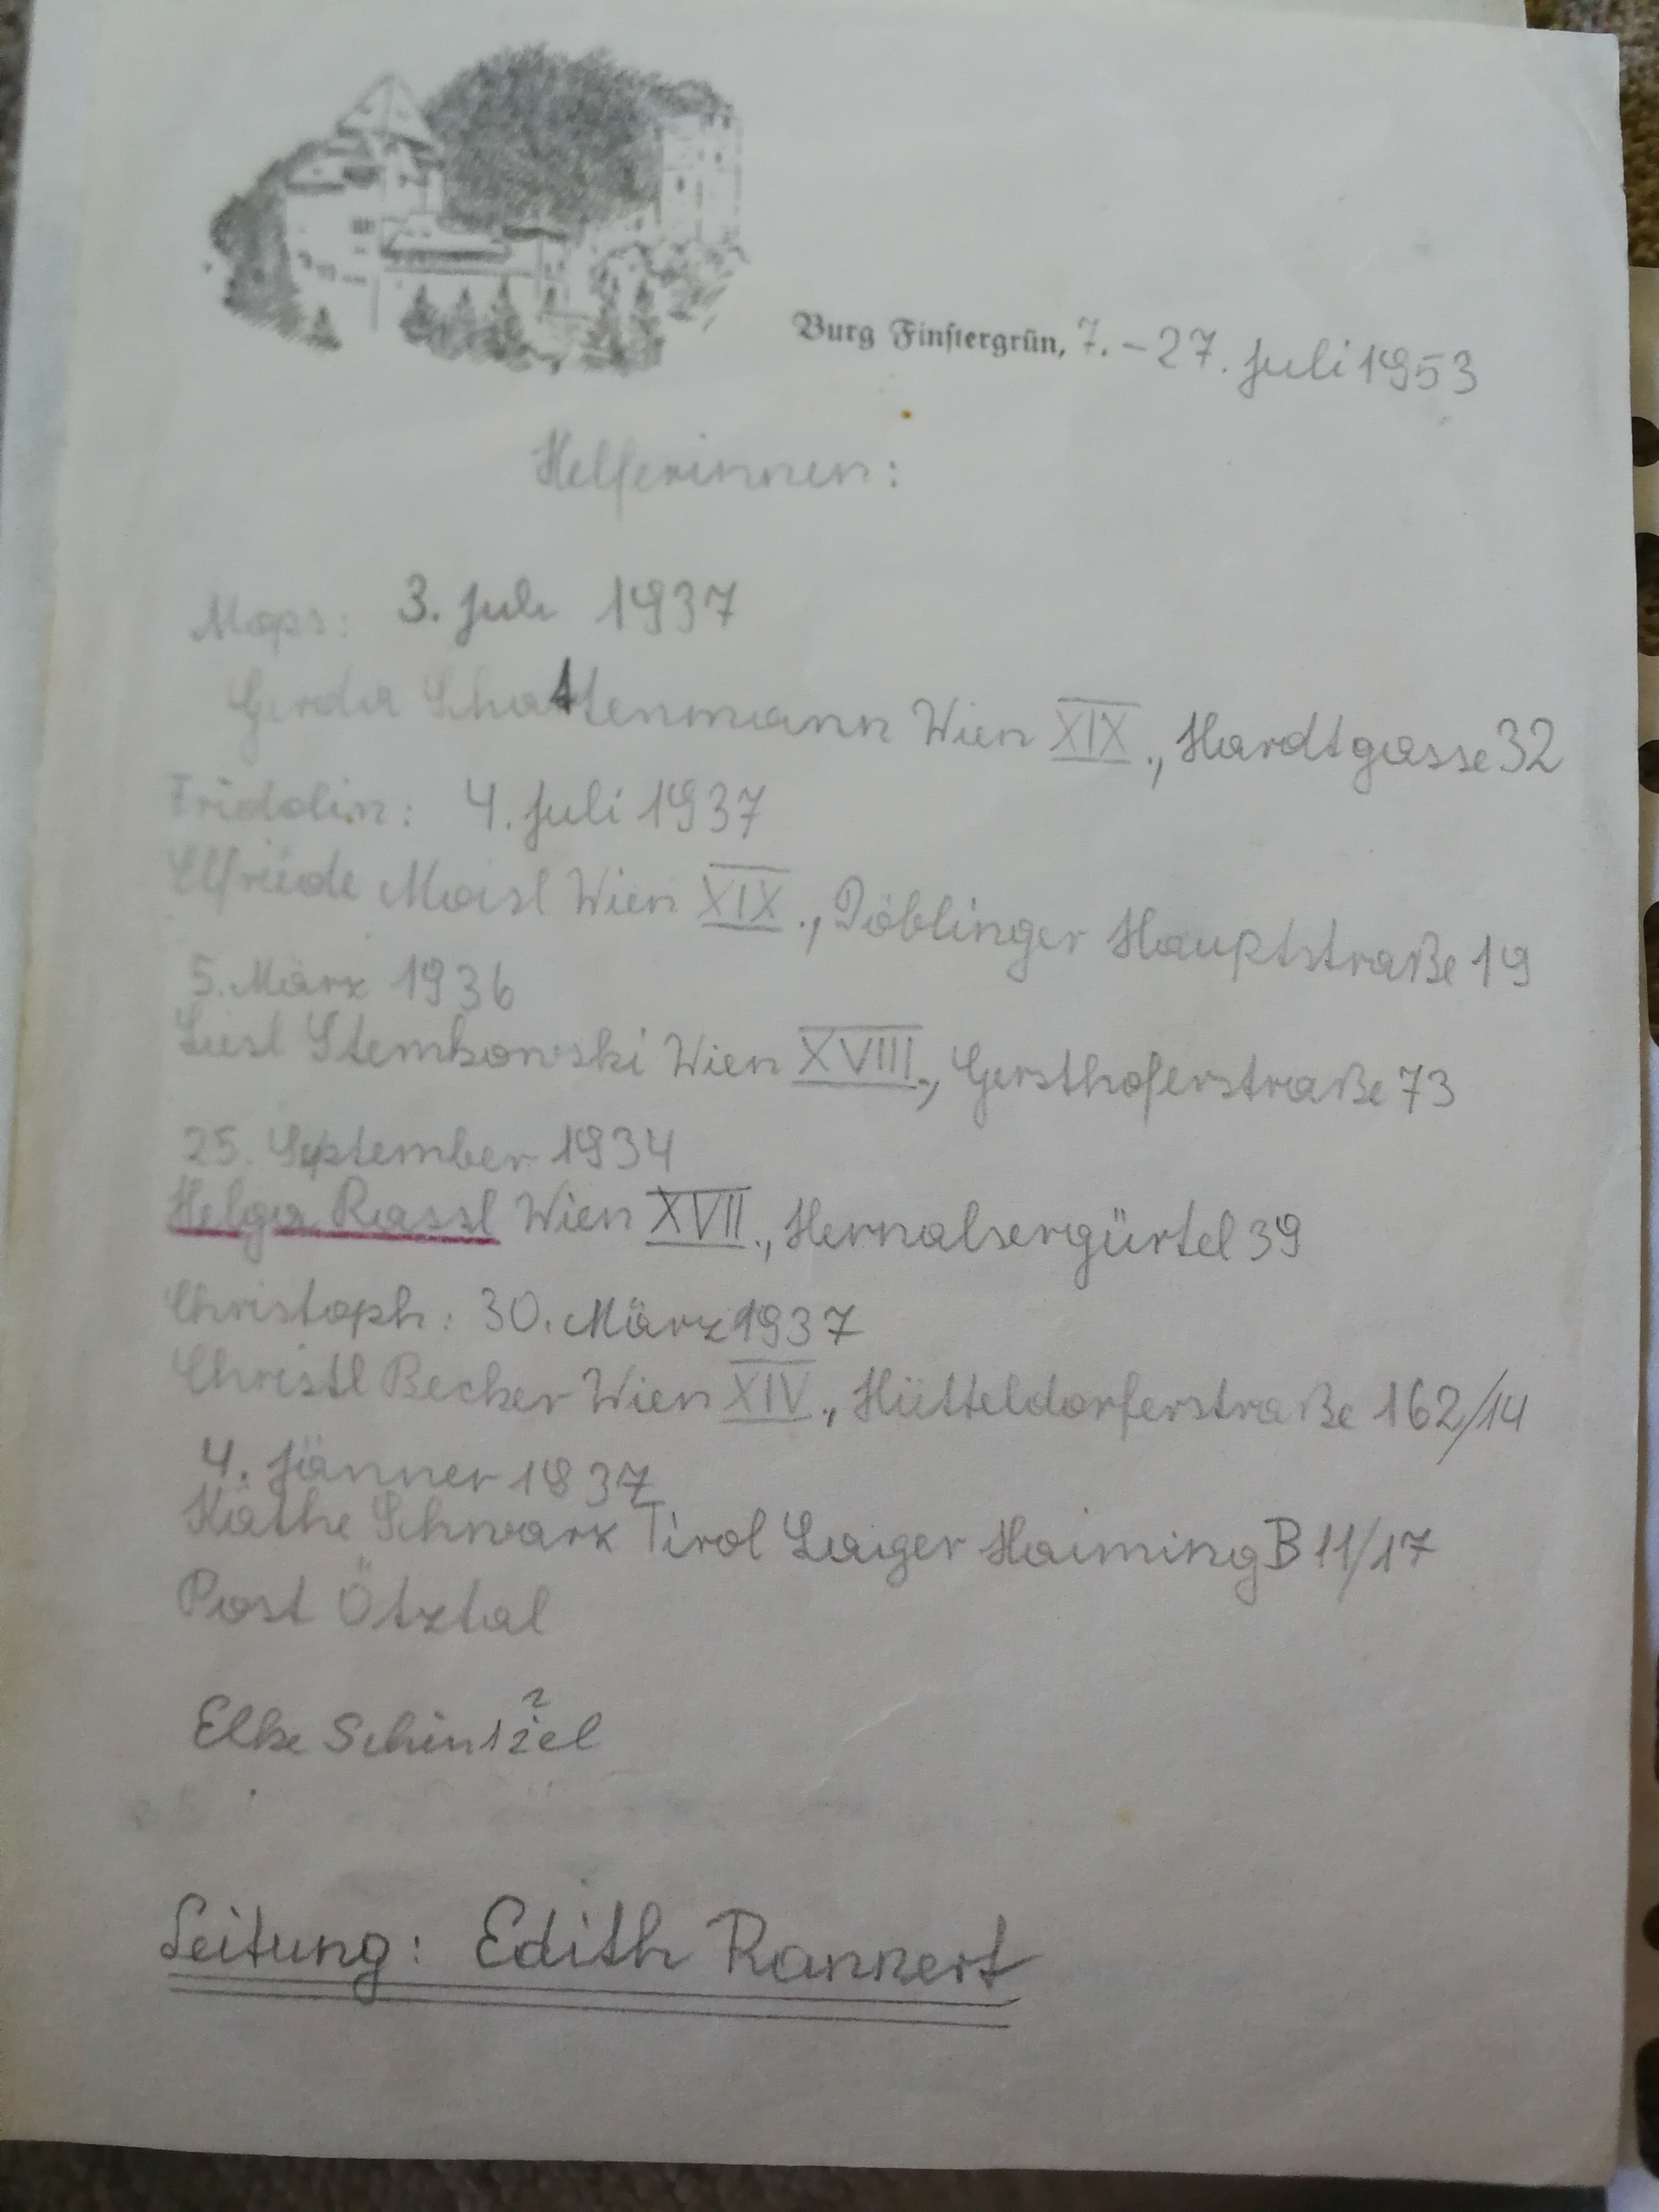 Burg Finstergrün, 7.–27. Juli 1953
Helferinnen:
Mops: 3. Juli 1937
Gerda Schattenmann Wien XIX., Hardtgasse 32
Fridolin: 4. Juli 1937
Elfriede Maisl Wien XIX., Döblinger Hauptstraße 19
5. März 1936
Liesl Stemkowski Wien XVIII., Gersthoferstraße 73
25. September 1934
Helga Rassl Wien XVII., Hernalsergürtel 39
Christoph: 30. März 1937
Christl Becker Wien XIV., Hütteldorferstraße 162/14
4. Jänner 1937
Käthe Schwarz Tirol Lager Haiming B 11/17
Post Ötztal
?
Elke
Leitung: Edith Rannert